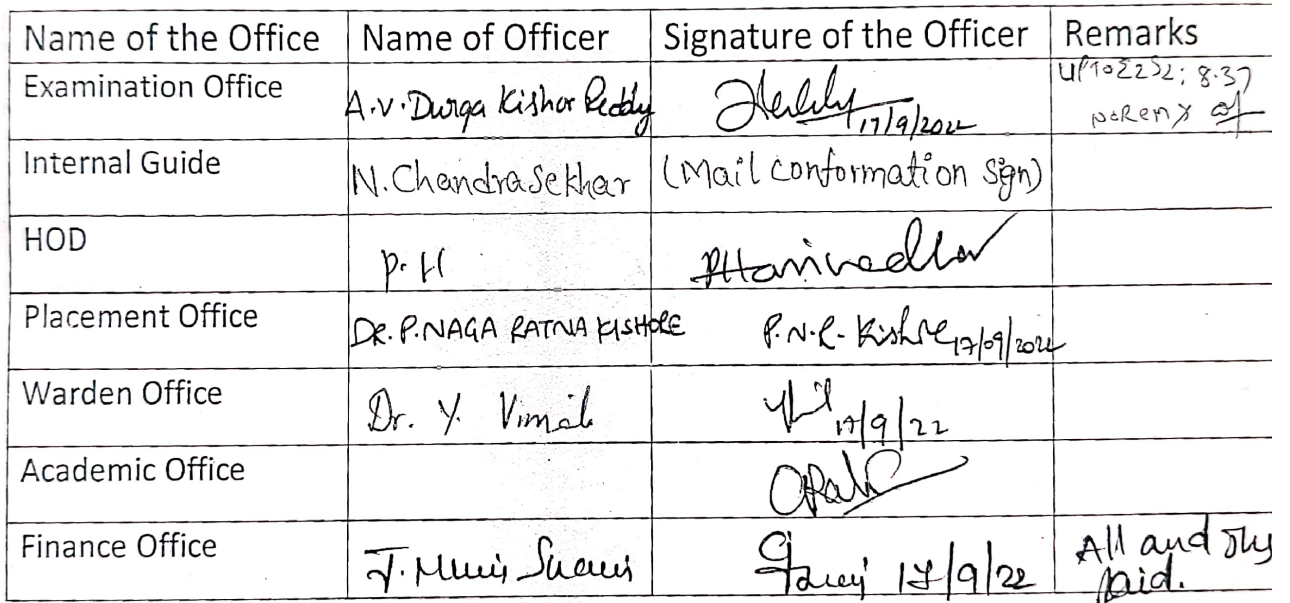 Name of the Office Name of Officer Signature of the Officer Remarks
Examination Office A.V. Durga Kishor Reddy 17/9/2022 8.37
Internal Guide N. Chandra Sekhar (Mail Conformation Sign)
HOD P. H
Placement Office DR. P. NAGA RATNA KISHORE P.N.R. Kishore 17/09/2022
Warden Office Dr. Y. Vimal 17/9/22
Academic Office
Finance Office 17/9/22 All and
paid.